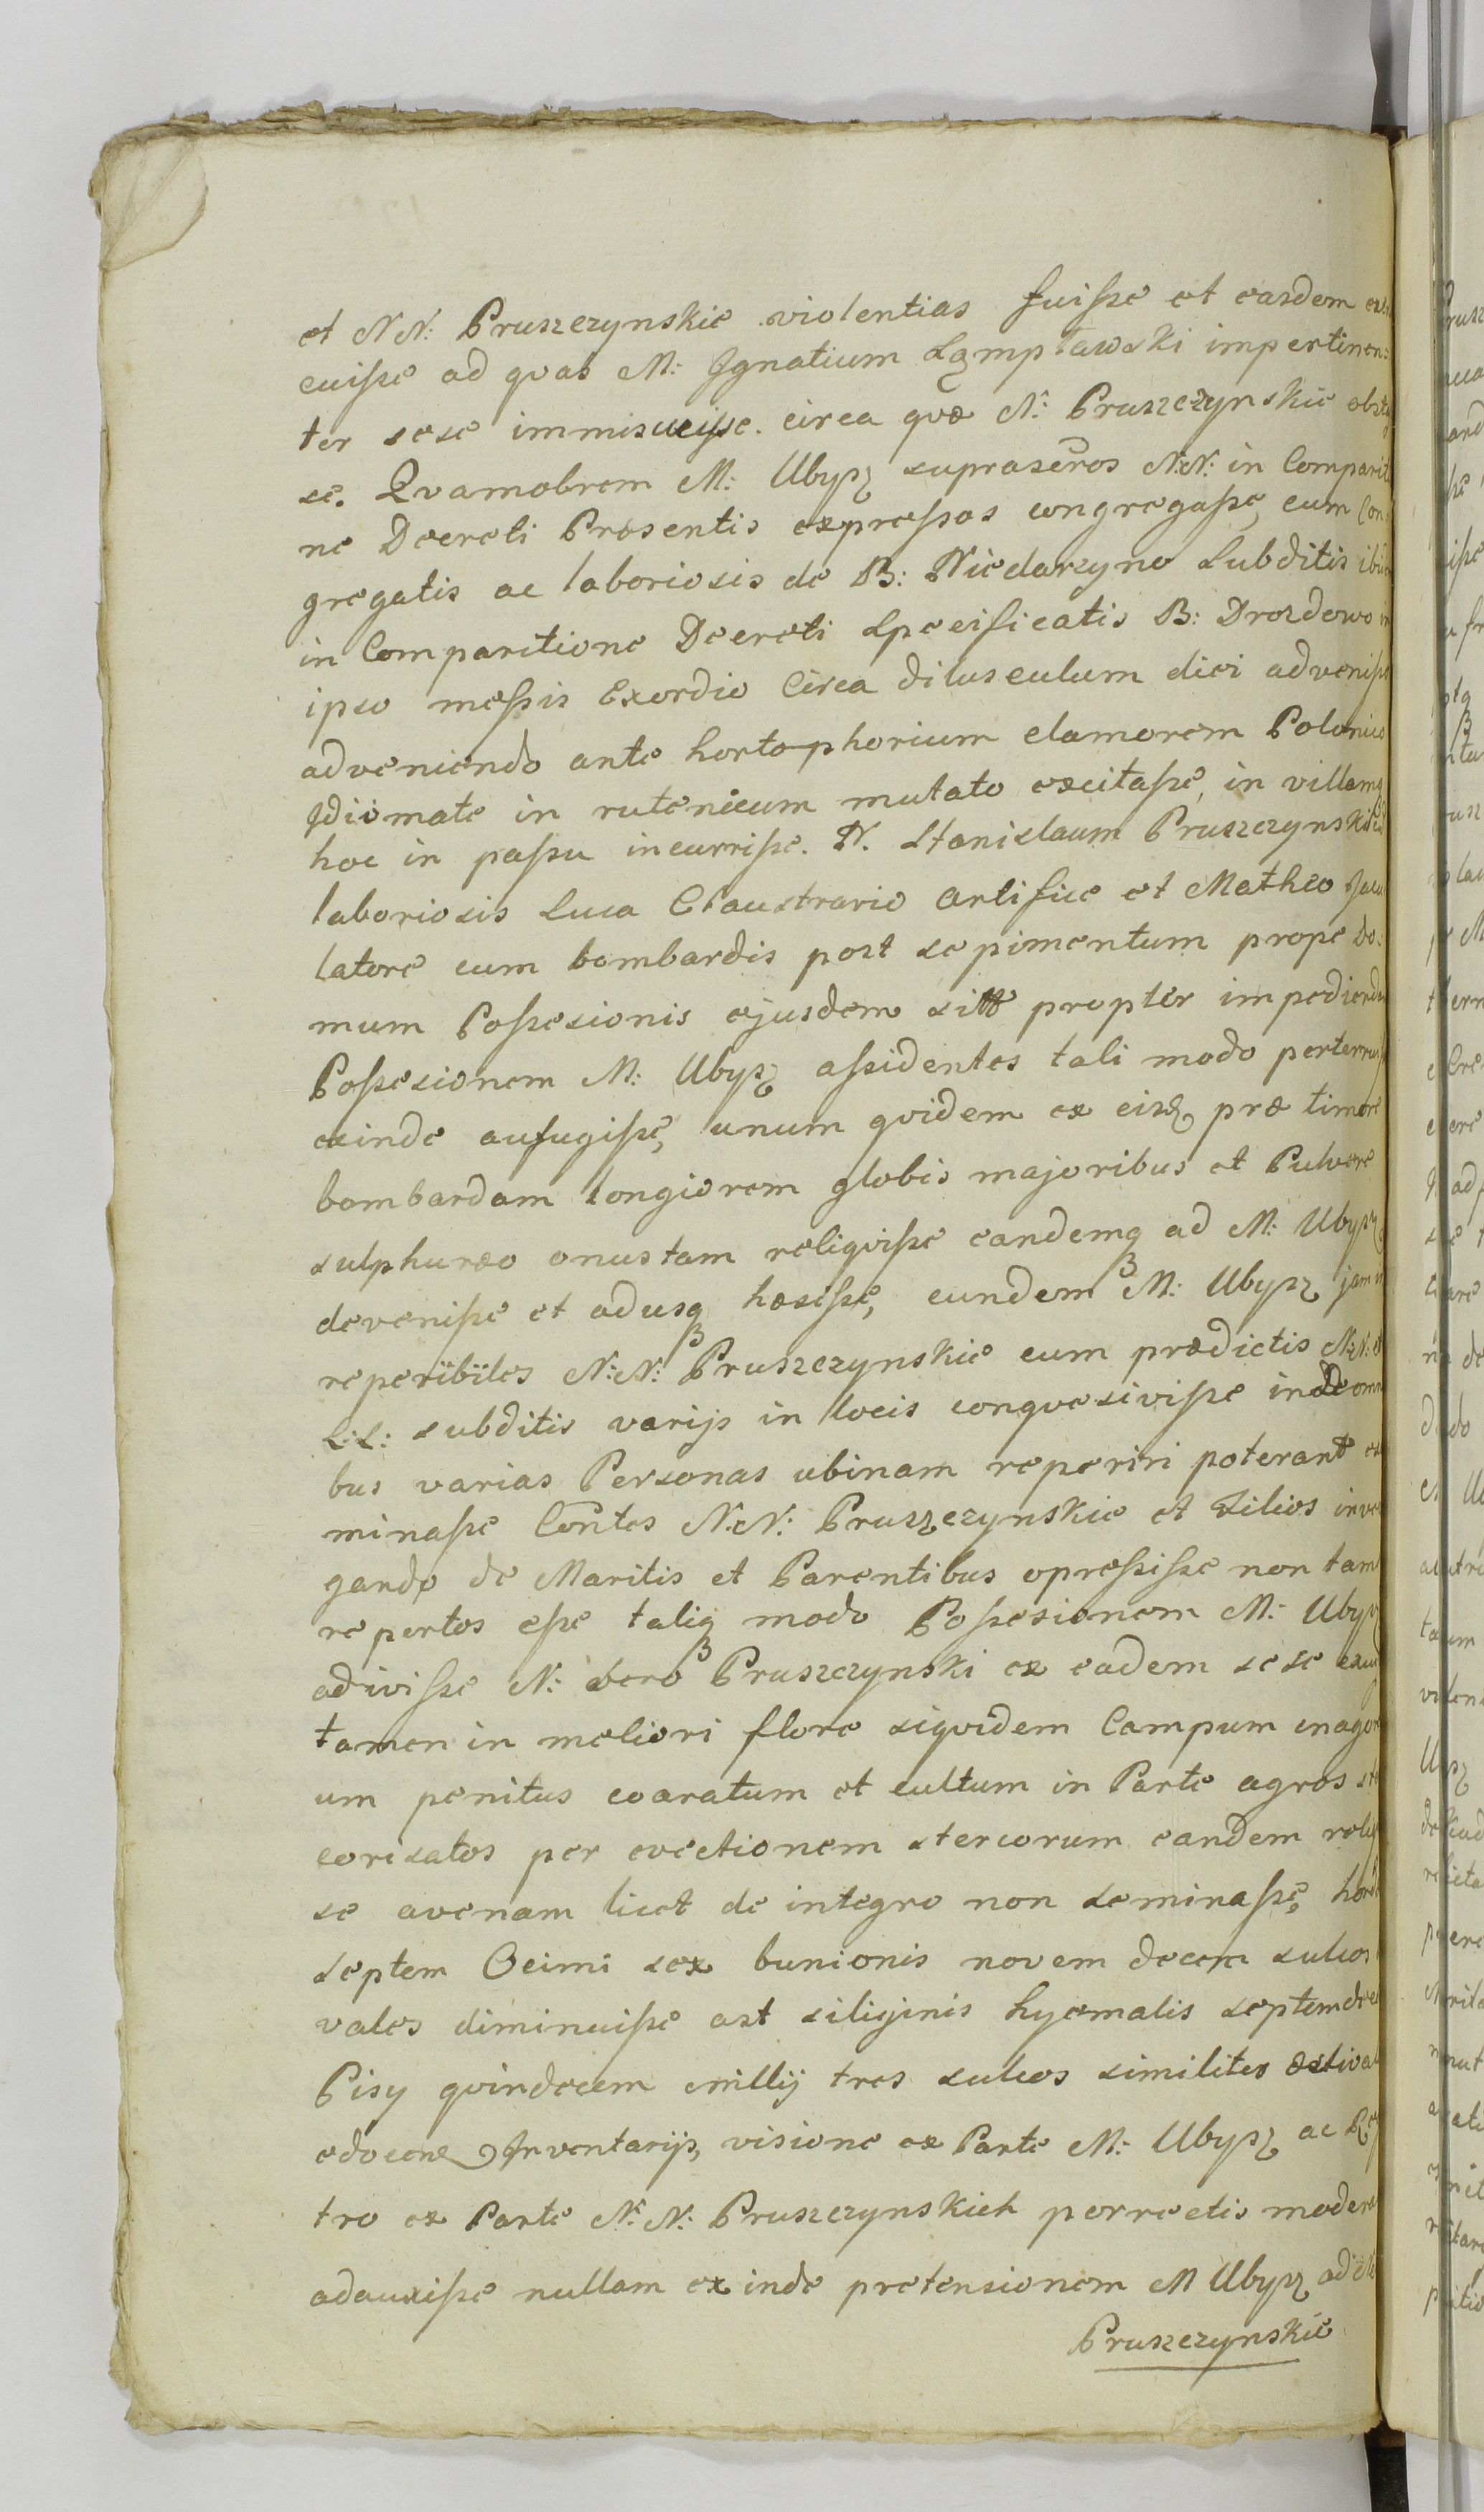 et NN: Pruszczynskie violentias fuisse et easdem
cuisse ad qvas M: Ignatium Lęmpławski impertinen:
ter sese immiscuisse. circa qvæ N: Pruszczynskie
se. Qvamobrem M: Ubysz suprascros N:N: in Comparitio
ne Decreti Præsentis expressos congregasse, cum Con:
gregatis ac laboriosis de B: Niedarzyno Subditis
in Comparitione Decreti Specificatis B: Drozdowo
ipso messis Exordio Circa diluculum diei advenisse
adveniendo ante hortophorium clamorem Polonico
Idiomate in rutenicum mutato excitasse, in villamq
hoc in passu incurrisse. N. Stanislaum Pruszczynski
laboriosis Luca Claustrario Artifice et Matheo Jacu
latore cum bombardis post sepimentum prope Do:
mum Possesionis ejusdem propter impediendam
Possesionem M: Ubysz assidentes tali modo
exinde aufugisse, unum qvidem ex eisd præ timore
bombardam longiorem globis majoribus et Pulvere
sulphureo onustam reliqvisse eandemq ad M: Ubysz
devenisse et adusq hæsisse, eundem M: Ubysz jam
reperibiles N:N: Pruszczynskie cum prædictis N:N:
L:L: subditis varijs in locis conqvesivisse
bus varias Personas ubinam reperiri poterant
minasse Contes N:N: Pruszczynskie et Filios
gando de Maritis et Parentibus opressisse non tam
repertos esse taliq modo Possesionem M: Ubysz
adivisse N: vero Pruszczynski ex eadem sese
tamen in meliori flore siqvidem Campum
um penitus coaratum et cultum in Parte agros
corisatos per evectionem stercorum eandem
se avenam licet de integro non seminasse,
septem Ocimi sex bunionis novem decem sulcos
vales diminuisse ast siliginis hyemalis septemdecem
Pisy qvindecem millij tres sulcos similiter æstivales
Inventarijs, visione ex Parte M: Ubysz ac
tro ex Parte N: N: Pruszczynskich porrectis
adauxisse nullam exinde pretensionem M Ubysz
Pruszczynskie